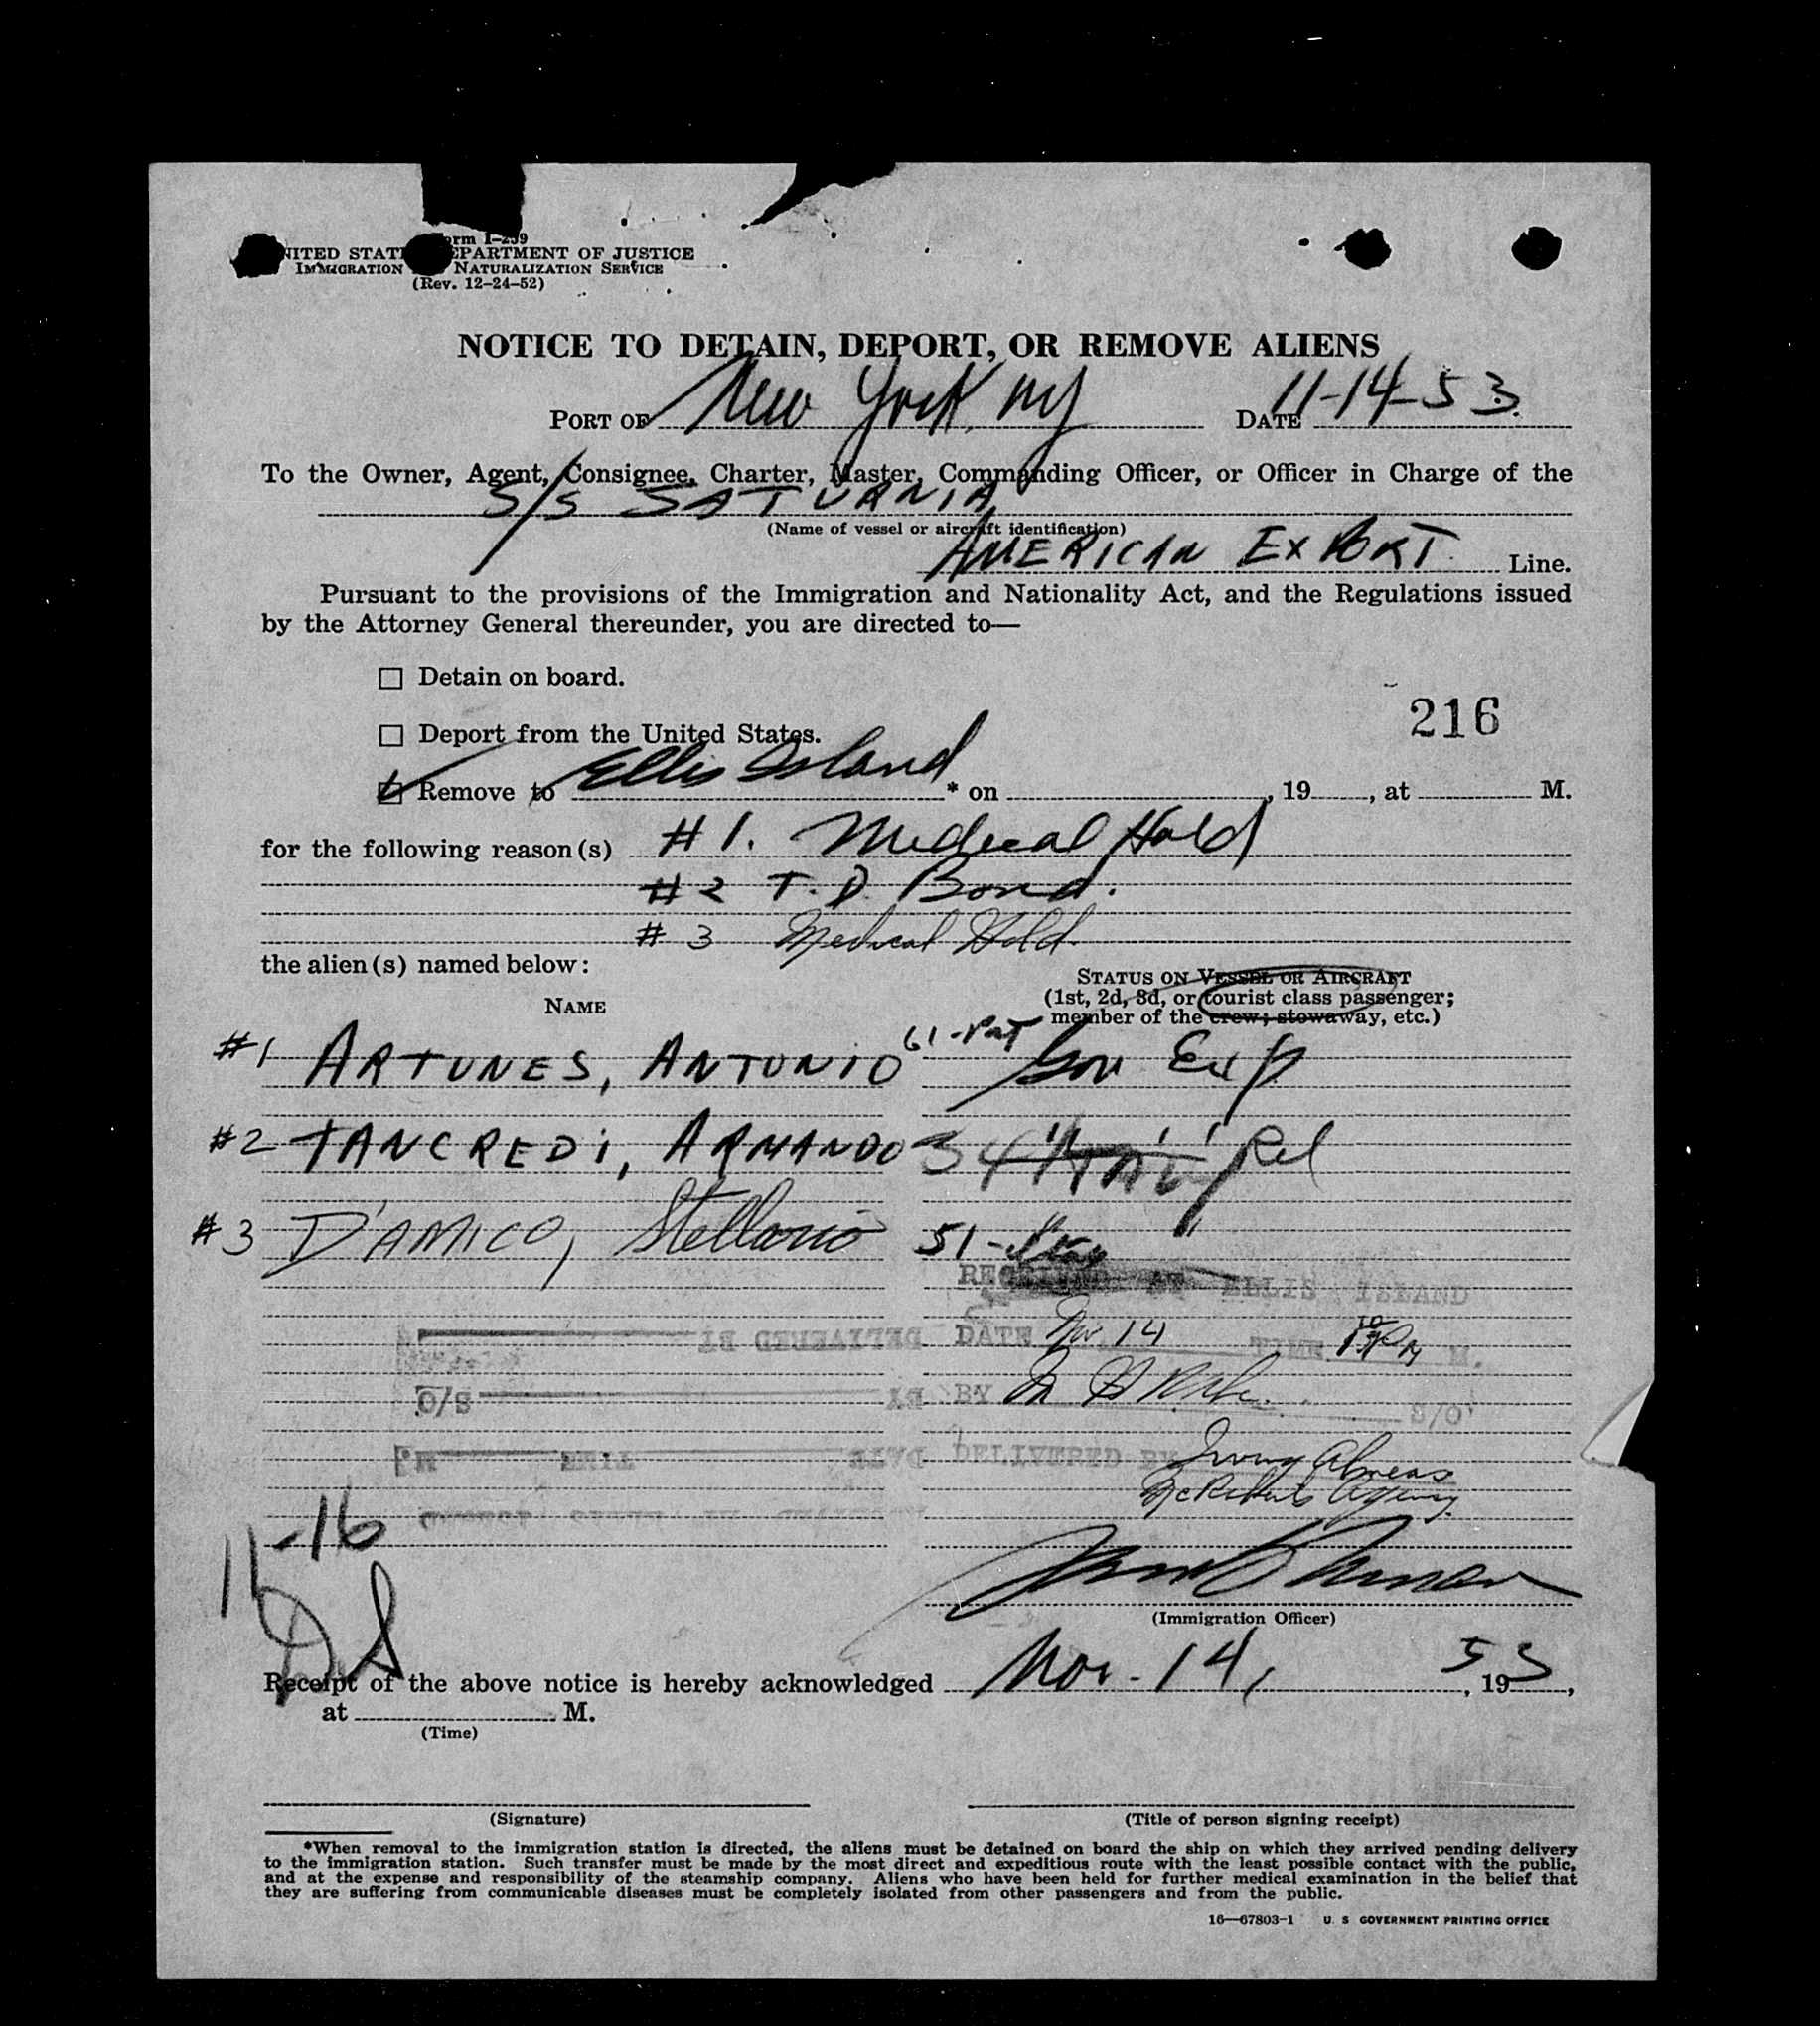 orm I-259
NITED STAT EPARTMENT OF JUSTICE
IMMIGRATION NATURALIZATION SERVICE
(Rev. 12-24-52)
NOTICE TO DETAIN, DEPORT, OR REMOVE ALIENS
PORT OF New York, NY DATE 11-14-53
To the Owner, Agent, Consignee, Charter, Master, Commanding Officer, or Officer in Charge of the
S/S SATURNIA
(Name of vessel or aircraft identification)
AMERICAN EXPORT Line.
Pursuant to the provisions of the Immigration and Nationality Act, and the Regulations issued
by the Attorney General thereunder, you are directed to—
☐ Detain on board.
☐ Deport from the United States.
216
☑ Remove to Ellis Island * on , 19 , at M.
for the following reason(s) #1. Medical Hold
#2 T. D. Bond.
#3 Medical Hold.
the alien(s) named below:
STATUS ON VESSEL OR AIRCRAFT
(1st, 2d, 3d, or tourist class passenger;
member of the crew; stowaway, etc.)
NAME
#1 ARTUNES, ANTONIO 61- Gov Exp
#2 TANCREDI, ARMANDO 34 Rel
#3 D'AMICO, Stellario 51-
RECEIVED AT ELLIS ISLAND
DATE Nov 14 TIME M.
BY S/O
DELIVERED BY Irving
Agency
11-16
DS
(Immigration Officer)
Receipt of the above notice is hereby acknowledged Nov. 14, 1953,
at M.
(Time)
(Signature)
(Title of person signing receipt)
*When removal to the immigration station is directed, the aliens must be detained on board the ship on which they arrived pending delivery
to the immigration station. Such transfer must be made by the most direct and expeditious route with the least possible contact with the public,
and at the expense and responsibility of the steamship company. Aliens who have been held for further medical examination in the belief that
they are suffering from communicable diseases must be completely isolated from other passengers and from the public.
16—67803-1 U. S GOVERNMENT PRINTING OFFICE